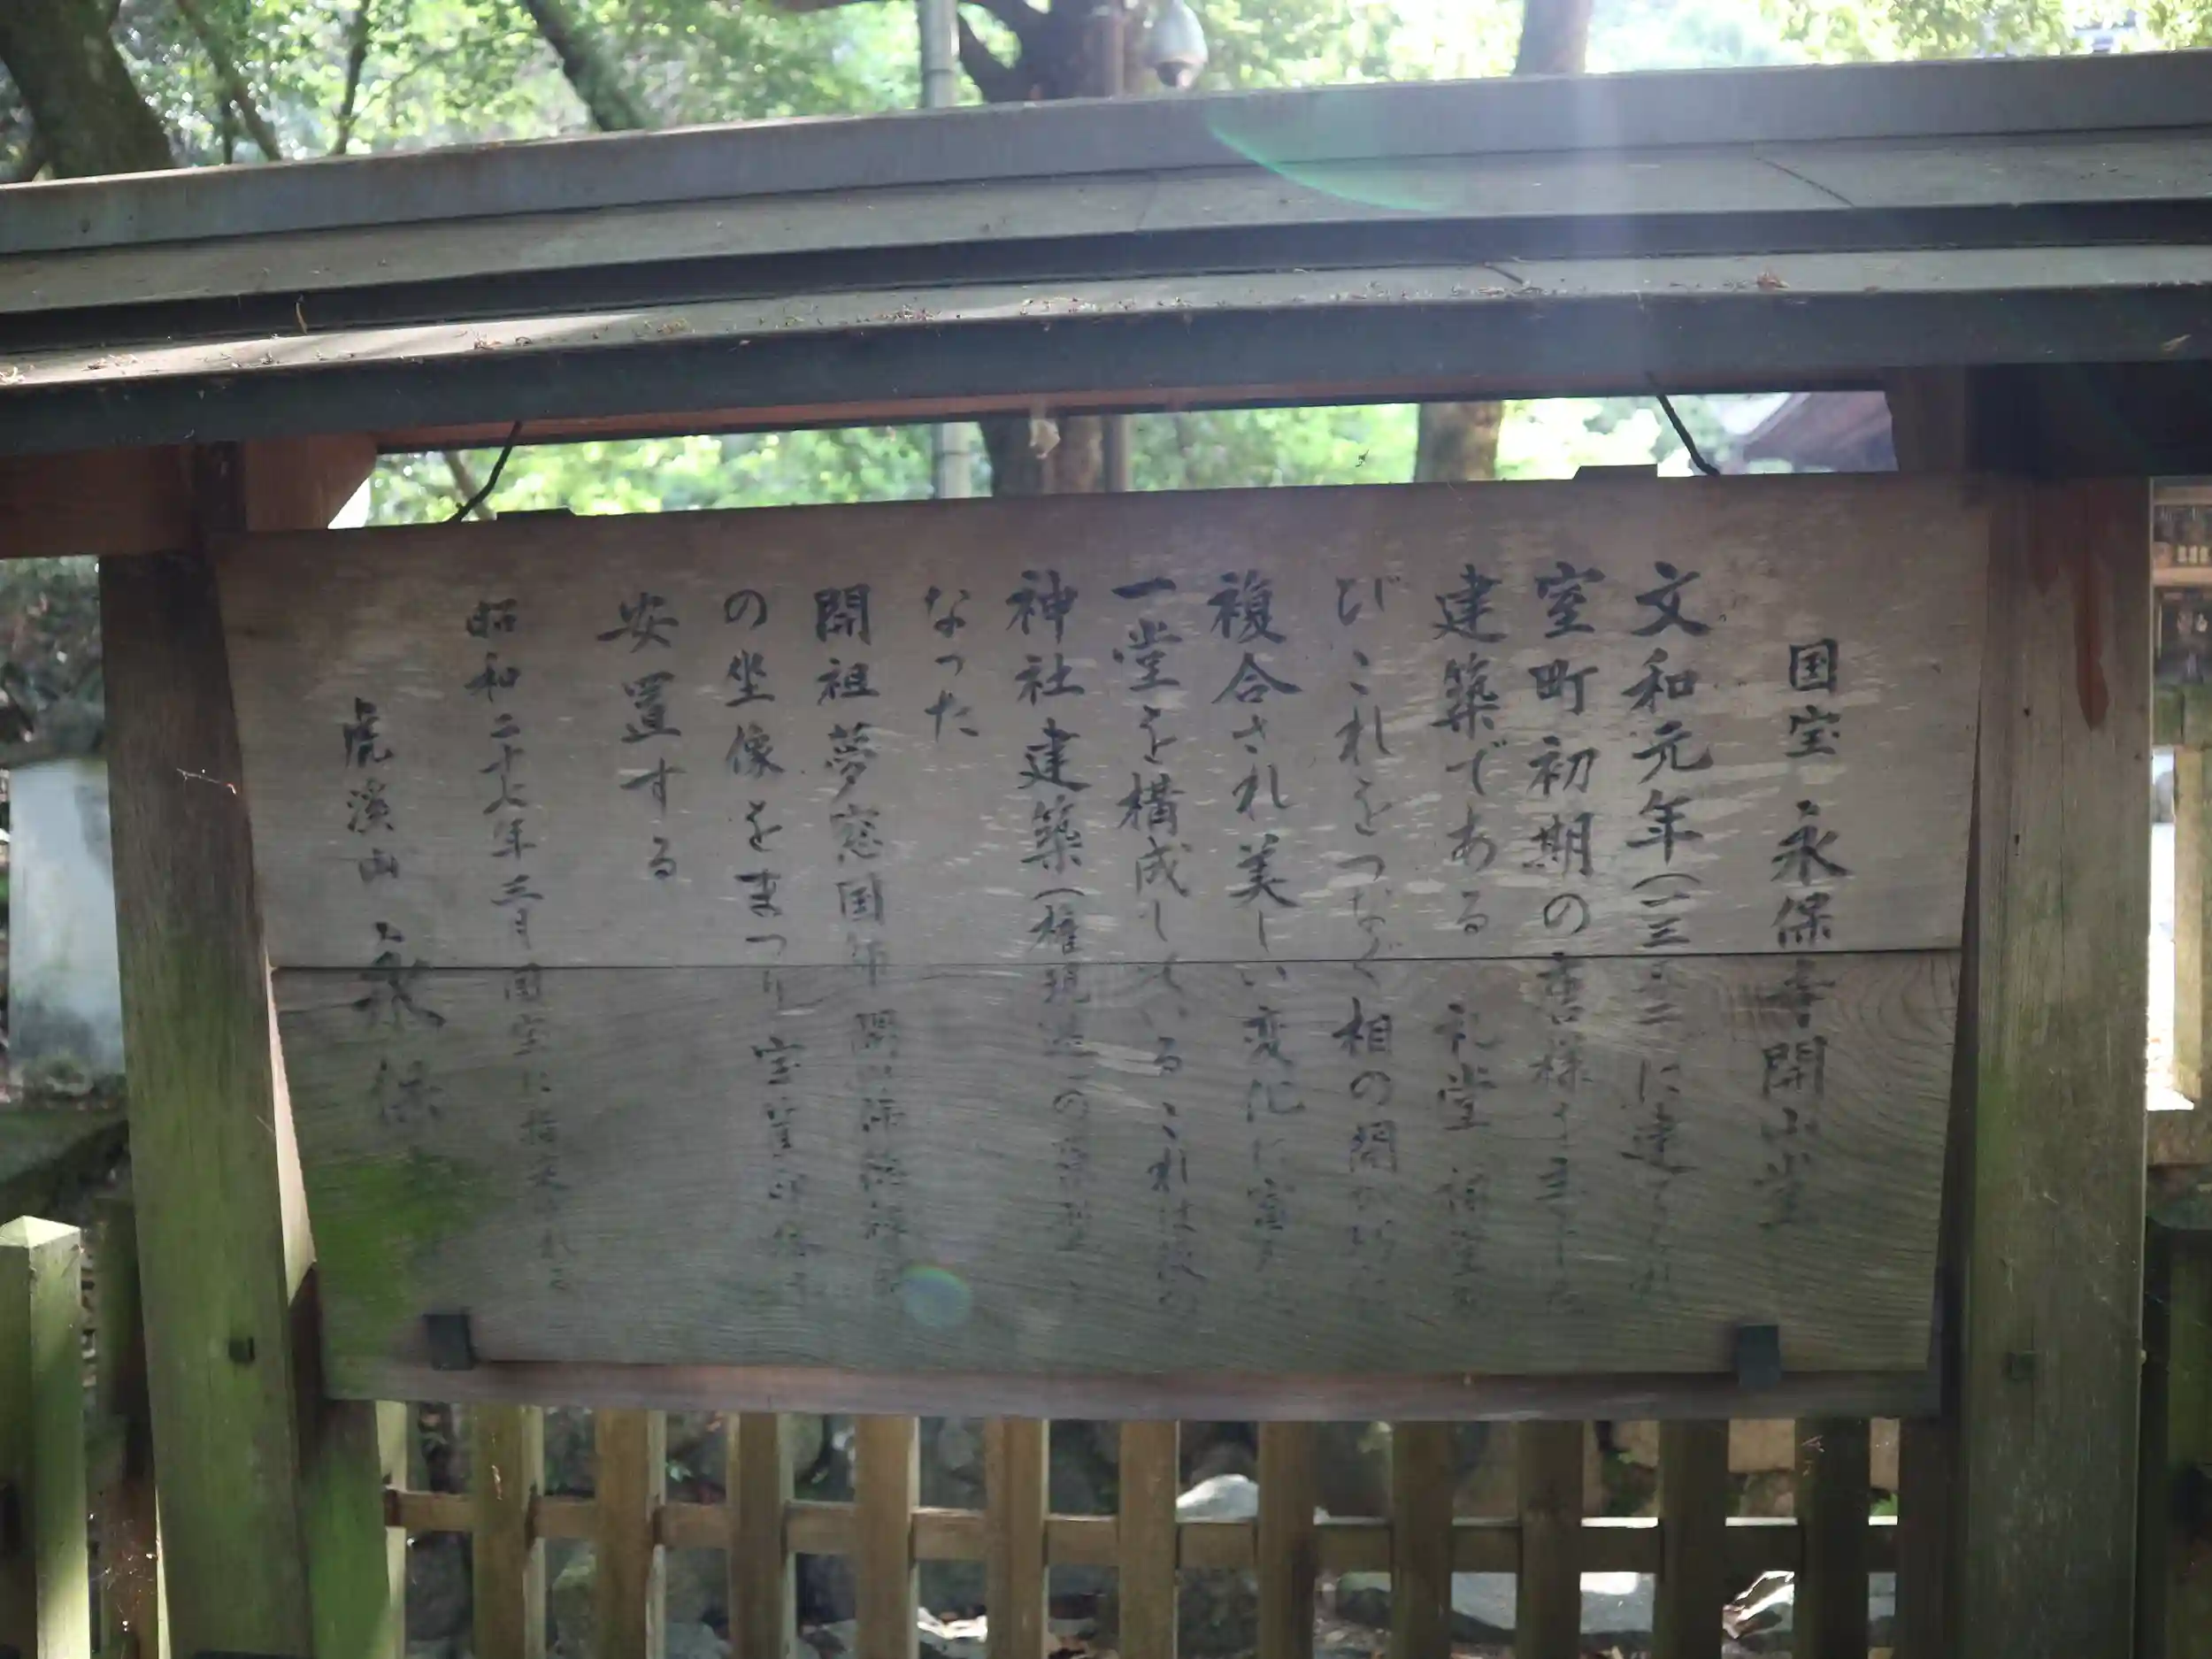 国宝 永保寺開山堂
文和元年(一三五二)に建てられ
室町初期の唐様を主とした
建築である 礼堂 祠堂及
びこれをつなぐ相の間が
複合され美しい変化に富む
一堂を構成している これは後の
神社建築(権現造)の原型と
なった
開祖夢窓国師 開山佛徳禅師
の坐像をまつり 宝篋印塔を
安置する
昭和二十七年三月 国宝に指定される
虎溪山 永保